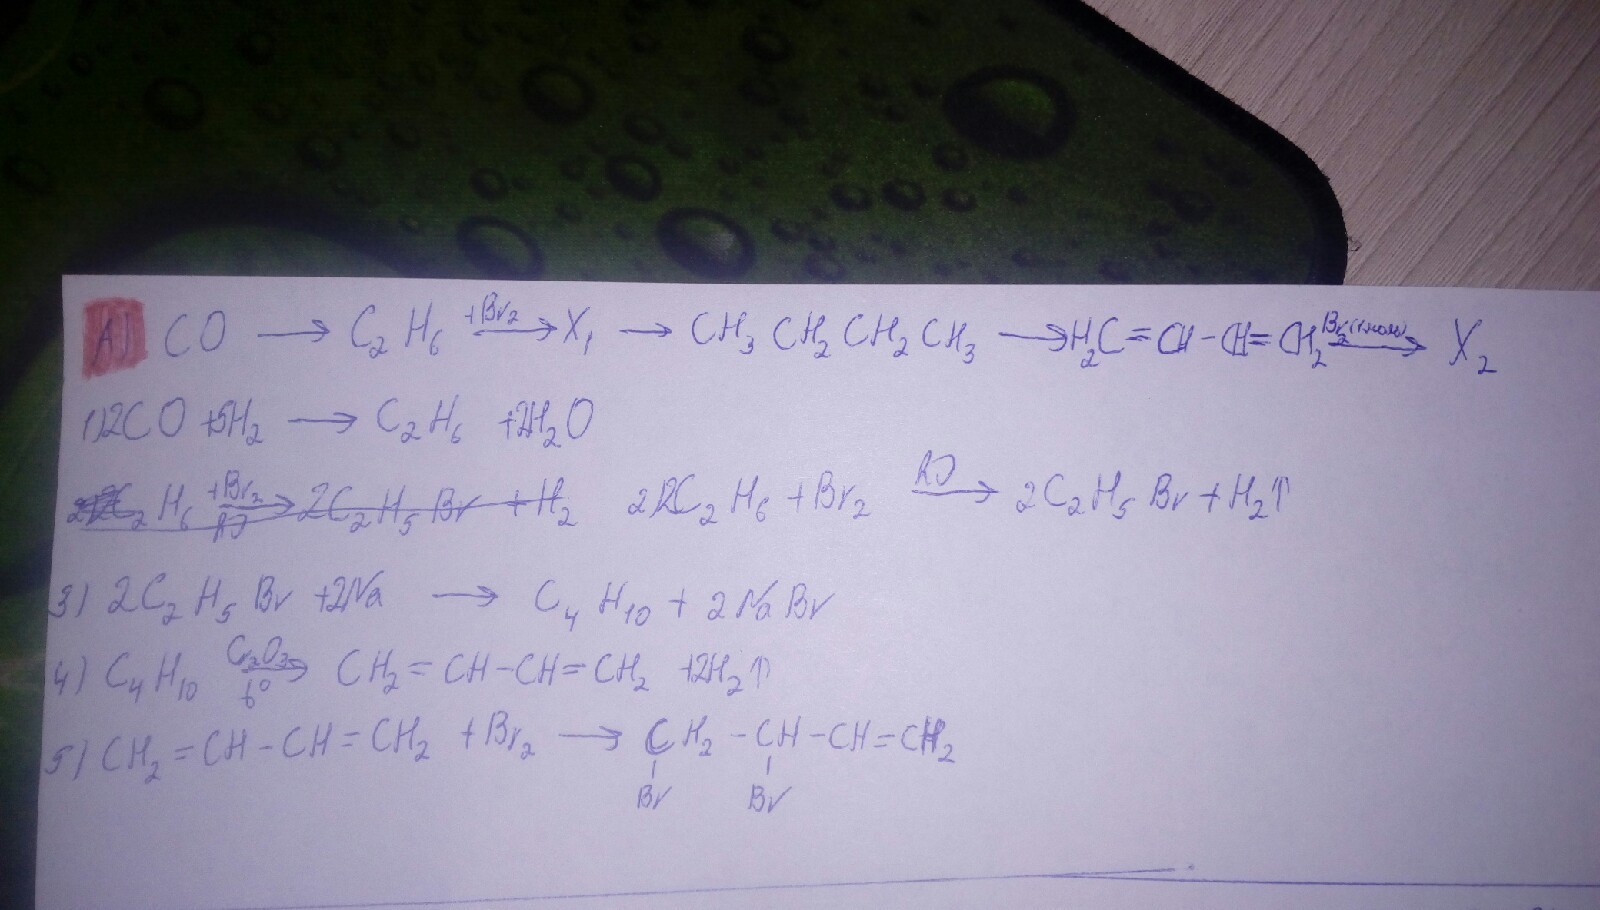 А) CO → C₂H₆ +Br₂→ X₁ → CH₃ CH₂ CH₂ CH₃ → H₂C=CH-CH=CH₂ Br₂(1моль)→ X₂
1) 2CO +5H₂ → C₂H₆ +2H₂O
C₂H₆ +Br₂→ 2C₂H₅Br + H₂ 2) 2C₂H₆ + Br₂ → 2C₂H₅Br + H₂↑
3) 2C₂H₅Br +2Na → C₄H₁₀ + 2NaBr
4) C₄H₁₀ t°→ CH₂=CH-CH=CH₂ +2H₂↑
5) CH₂=CH-CH=CH₂ +Br₂ → CH₂-CH-CH=CH₂
Br Br